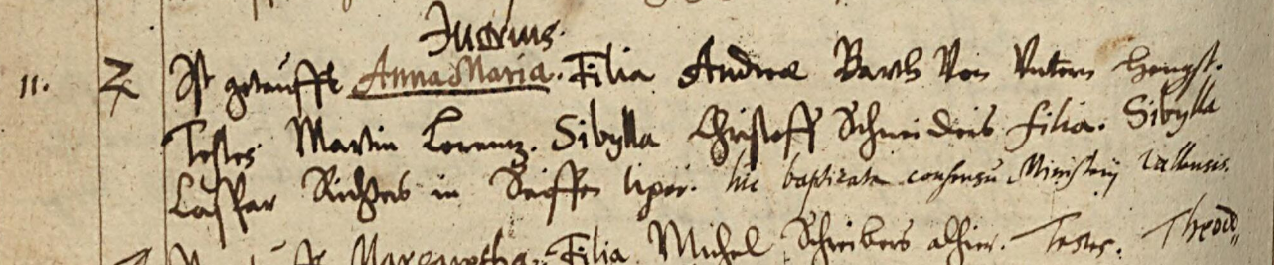 Junius.
11. Ist getaufft Anna Maria. Filia Andreæ Barth Von Untern Hengst.
Testes Martin Lorentz. Sibylla Christoff Schneiders filia. Sibylla
Caspar Richters in Seiffen Uxor. hic baptizata consensu Ministerij Vallensis.
Margaretha. Filia Michel Schreibers alhier. Testes. Theod